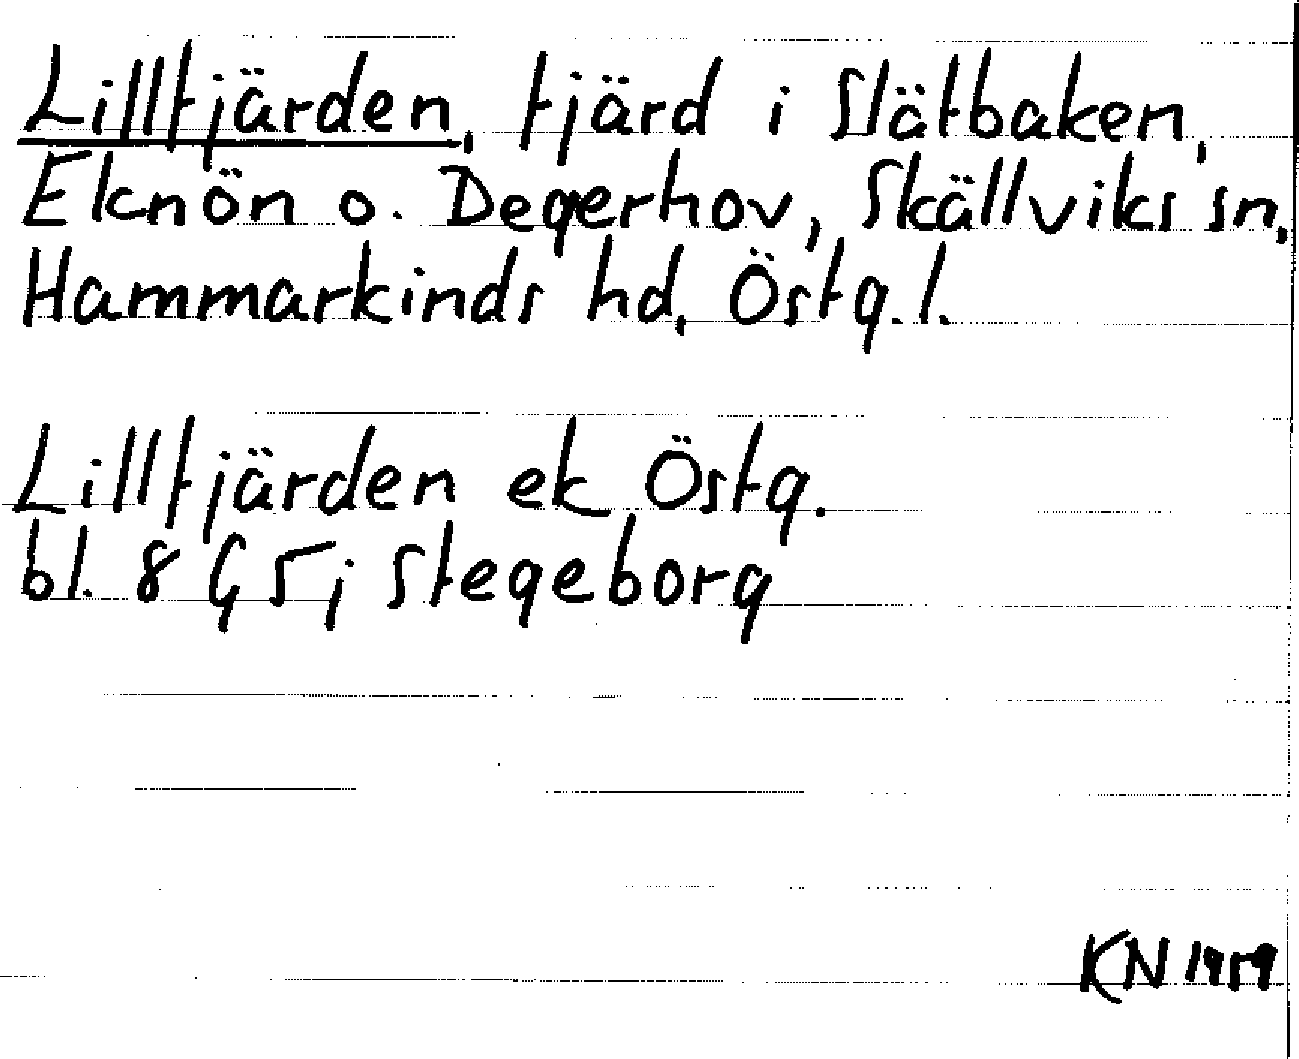 Lillfjärden, fjärd i Slätbaken,
Eknön o. Degerhov, Skällviks sn,
Hammarkinds hd, Östg. l.
Lillfjärden ek Östg.
bl. 8 G 5 j Stegeborg
KN 1959